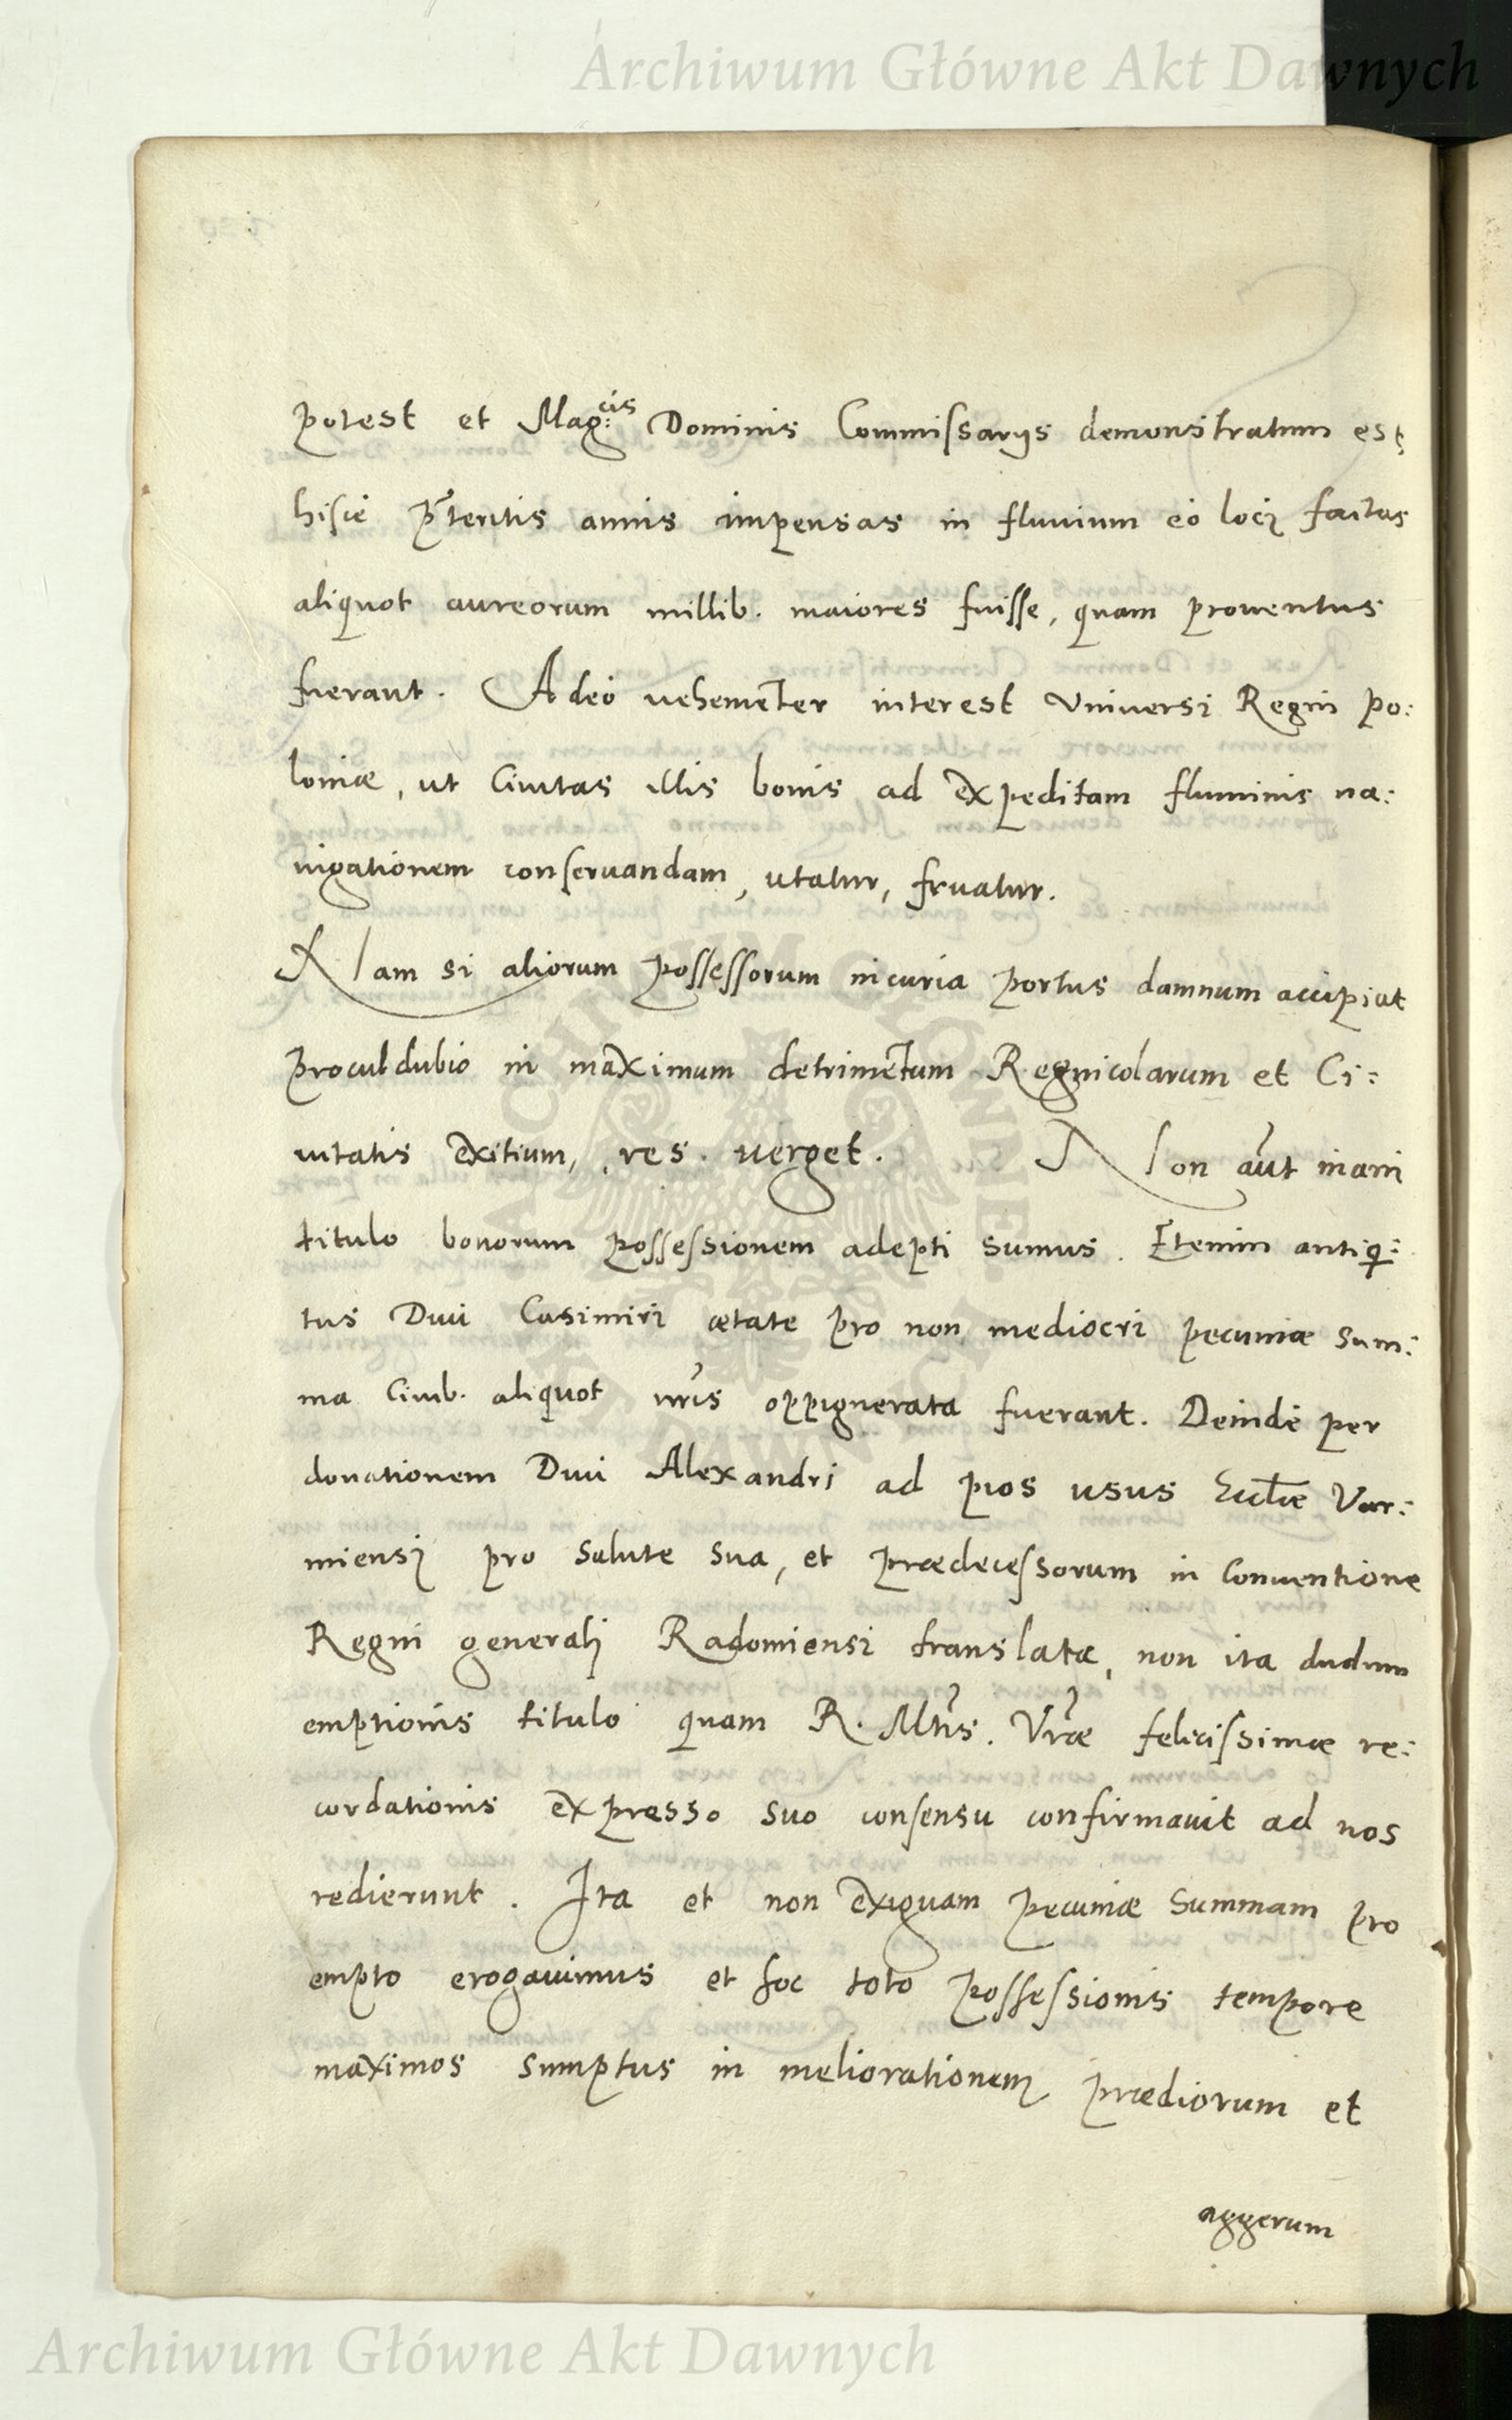 Archiwum Główne Akt Dawnych
potest et Mag:cis Dominis Commissarijs demonstratum est,
hisce p̃teritis annis impensas in fluuium eò locj factas
aliquot aureorum millib. maiores fuisse, quam prouentus
fuerant. Adeò uehementer interest Vniuersi Regni Po:
loniæ, ut Ciuitas illis bonis ad expeditam fluminis na:
uigationem conseruandam, utatur, fruatur.
Nam si aliorum possessorum incuria portus damnum accipiat
proculdubio in maximum detrimentum Regnicolarum et Ci:
uitatis exitium, res uerget. Non aũt inani
titulo bonorum possessionem adepti sumus. Etenim antiq:
tus Diui Casimiri ætate pro non mediocri pecuniæ sum:
ma Ciuib. aliquot nr̃is oppignerata fuerant. Deinde per
donationem Diui Alexandri ad pios usus Eccl̃iæ Var:
miensj pro salute sua, et prædecessorum in Conuentione
Regni generalj Radomiensi translatæ, non ita dudum
emptionis titulo quam R. Mt̃is. Vr̃æ felicissimæ re:
cordationis expresso suo consensu confirmauit ad nos
redierunt. Ita et non exiguam pecuniæ summam pro
empto erogauimus et hoc toto possessionis tempore
maximos sumptus in meliorationem prædiorum et
aggerum
Archiwum Główne Akt Dawnych